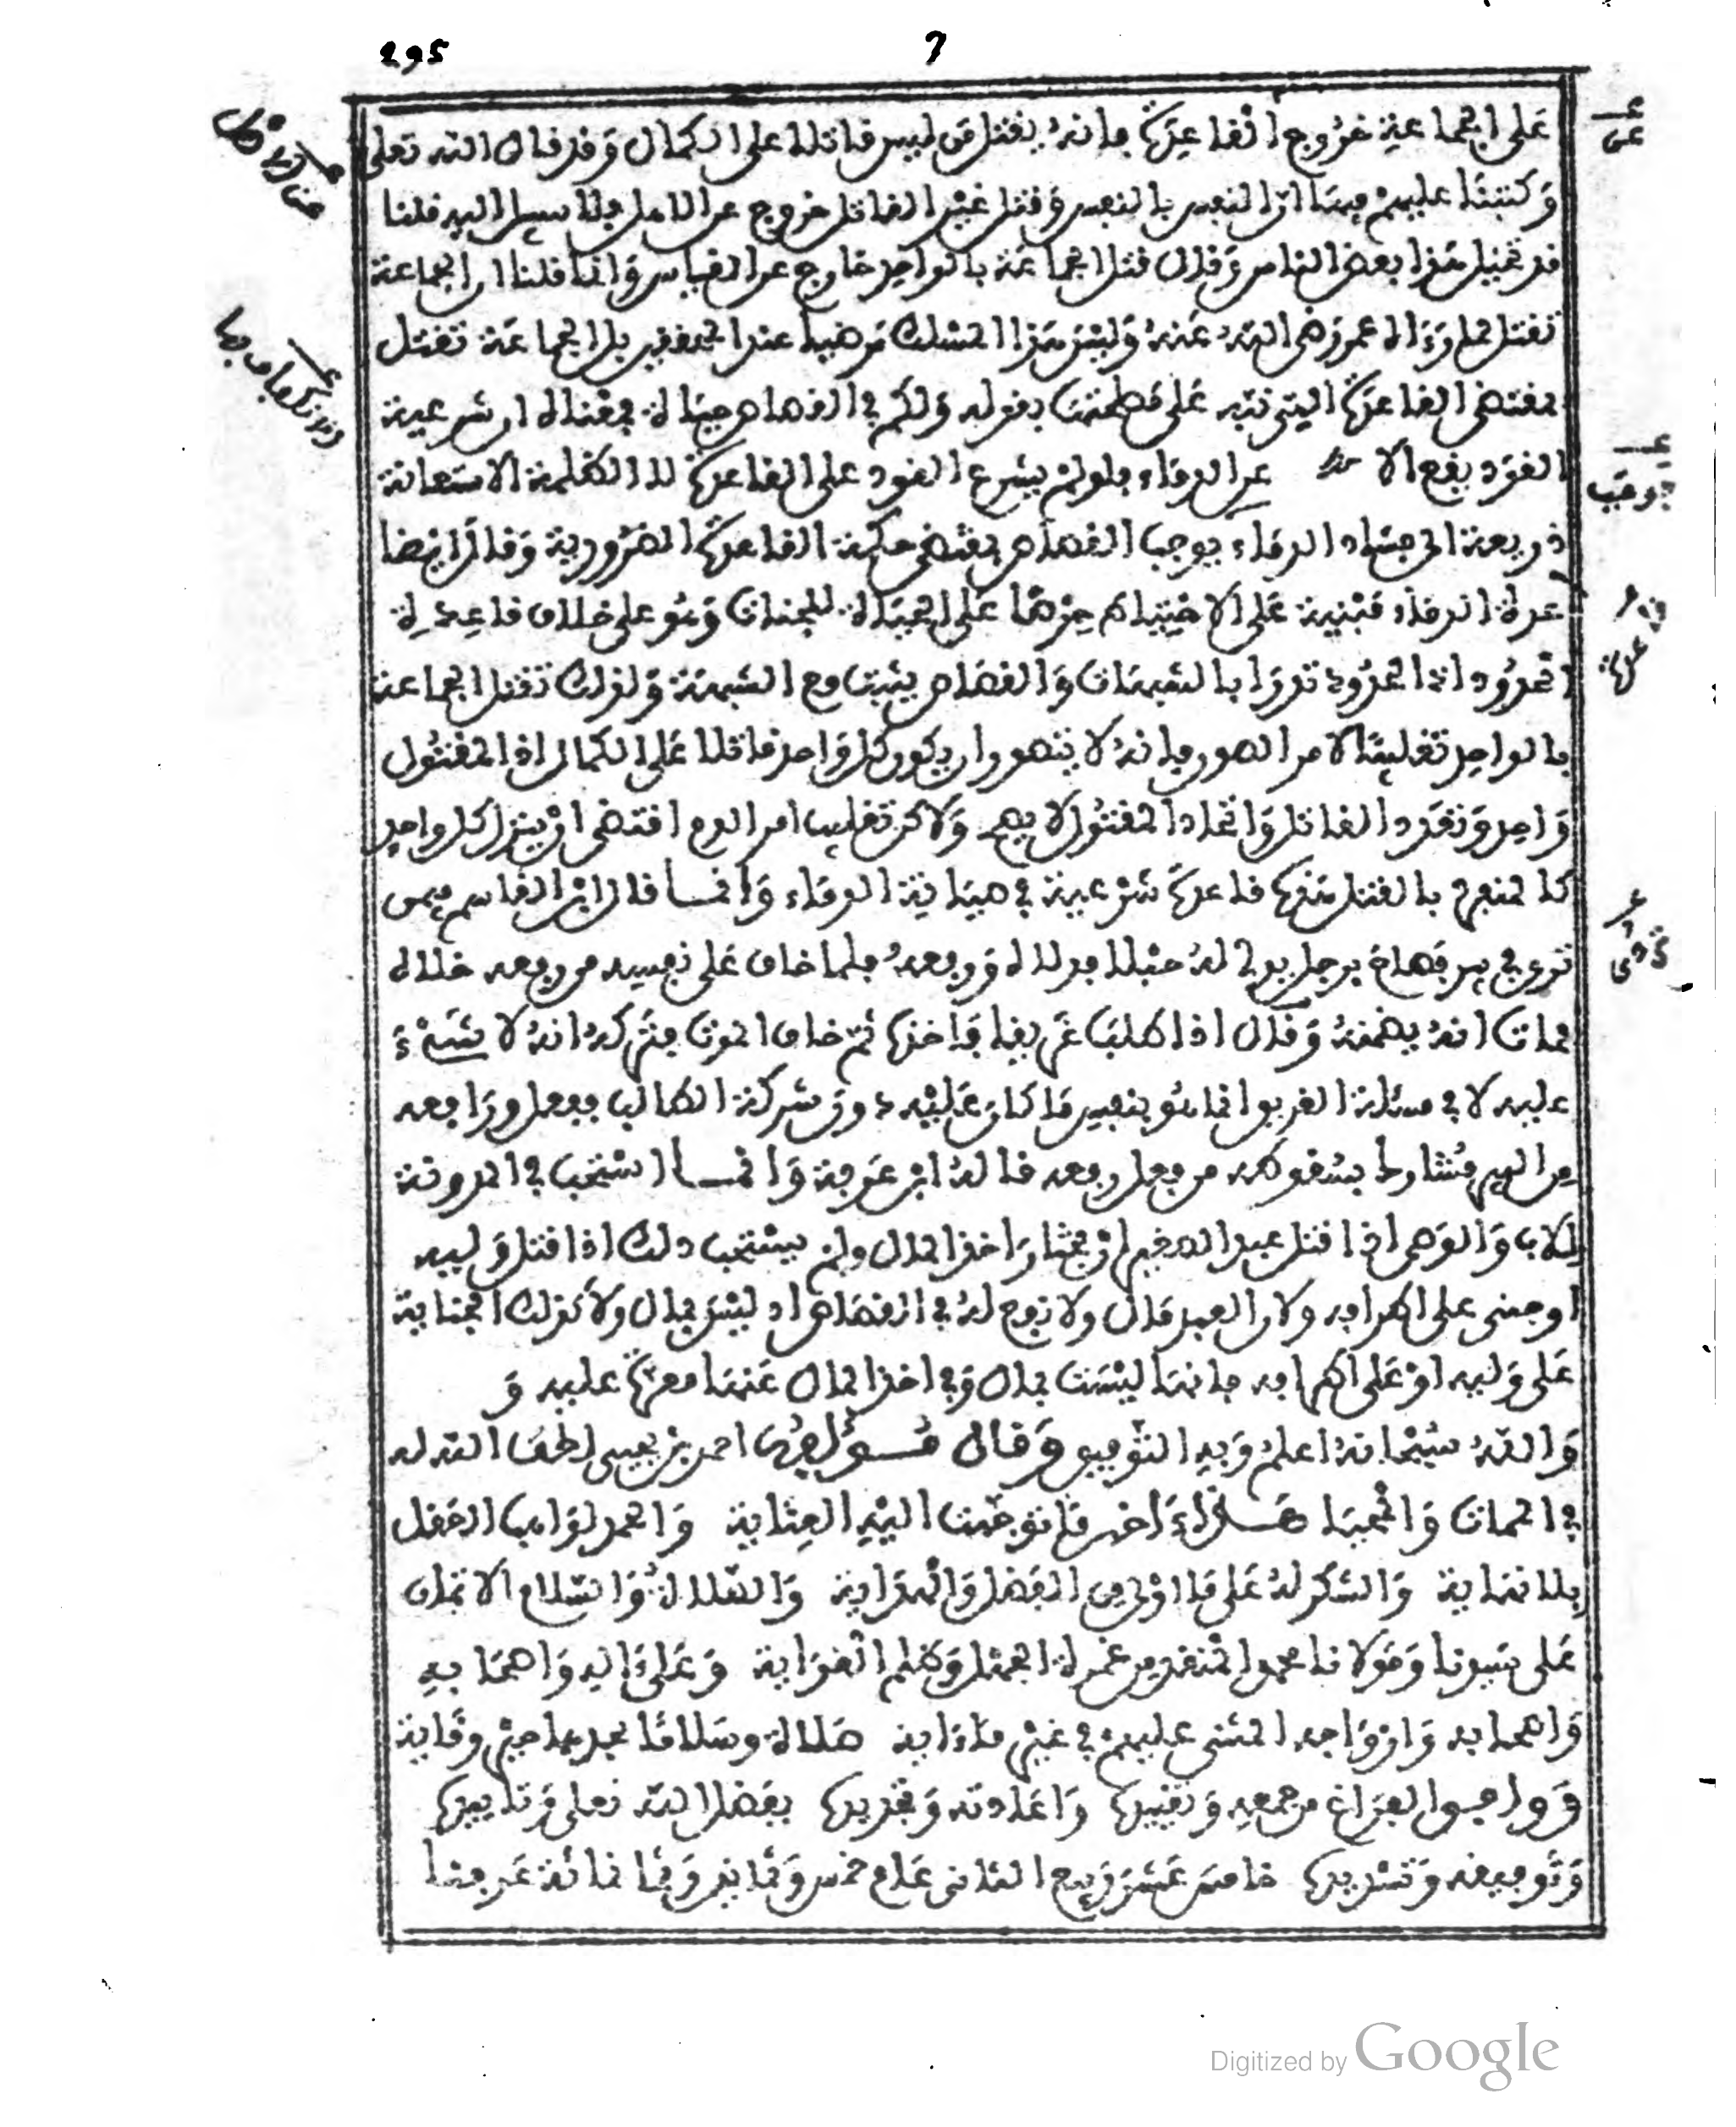 295 7
على الجماعة خروج القاعدة فانه يقتل من ليس قاتلا على الكمال وقد قال الله تعلى
وكتبنا عليهم فيها ان النفس بالنفس وقتل غير القاتل خروج عن الاصل فلا سبيل اليه قلنا
قد تخيل هذا بعض الناس وقال قتل الجماعة بالواحد خارج عن القياس وانما قلنا ان الجماعة
تقتل لما رءاه عمر رضي الله عنه وليس هذا المسلك مرضيا عند المحققين بل الجماعة تقتل
بمقتضى القاعدة التي نبه على حكمتها بقوله ولكم في القصاص حياة فمعناه ان شرعية
القود يقع الا عن الدماء فلو لم يشرع القود على القاعدة لـ الظلمة الاستعانة
ذريعة الى فساد الدماء فوجب القصاص بمقتضى حكمة القاعدة الضرورية وقالوا ايضا
قاعدة الدماء مبنية على الاحتياط حرصا على الحياة للجنات وهو على خلاف قاعدة
الحدود اذ الحدود تدرا بالشبهات والقصاص يثبت مع الشبهة ولذلك تقتل الجماعة
بالواحد تغليبا لامر الصور فانه لا يتصور ان يكون كل واحد قاتلا على الكمال اذ المقتول
واحد وتعدد القاتل واتحاد المقتول لا يصح ولاكن تغليب امر الدم اقتضى ان ينزل كل واحد
كالمنفرد بالقتل هذه قاعدة شرعية في صيانة الدماء وانما قال ابن القاسم فيمن
نزل في بير فصاح برجل يدلي له حبلا فدلاه ورفعه فلما خاف على نفسه من رفعه خلاه
فمات انه يضمنه وقال اذا طلب غريقا فاخذه ثم خاف الموت فتركه انه لا شيء
عليه لا في مسئلة الغريق انما هو بنفس ما كان عليه دون شركة الطالب بفعل ورافعه
من البير مشارك بسقوطه من فعل رفعه قاله ابن عرفة وانما استحب في المدونة
للاب والوصي اذا قتل عبد الصغير ان يختار اخذ المال ولم يستحب ذلك اذا قتل وليه
او جنى على اطرافه ولان العبد مال ولا نفع له في القصاص اذ ليس بمال ولا كذلك الجناية
على وليه او على اطرافه فانها ليست بمال وفي اخذ المال عنها معرة عليه و
والله سبحانه اعلم وبه التوفيق وقال مؤلفه احمد بن يحيى لطف الله له
في الممات والمحيا هذا ءاخر ما توجهت اليه العناية والحمد لواهب العقل
بلا نهاية والشكر له على ما اولى من الفضل والهداية والصلاة والسلام الاتمان
على سيدنا ومولانا محمد المنقذ من غمرة الجهل وظلم الغواية وعلى ءاله واصحابه
واصهاره وازواجه المثنى عليهم في غير ما ءاية صلاة وسلاما نجد بهما خير وقاية
ووافق الفراغ من جمعه وتقييده واعادته وتجديده بفضل الله تعلى وتاييده
وتوفيقه وتسديده خامس عشر ربيع الثاني عام خمس وثمانين وثمانمائة عرفنا
Digitized by Google